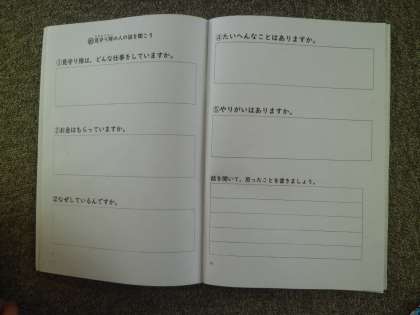 見守り隊の人の話を聞こう
①見守り隊は、どんな仕事をしていますか。
②お金はもらっていますか。
③なぜしているんですか。
④たいへんなことはありますか。
⑤やりがいはありますか。
話を聞いて、思ったことを書きましょう。